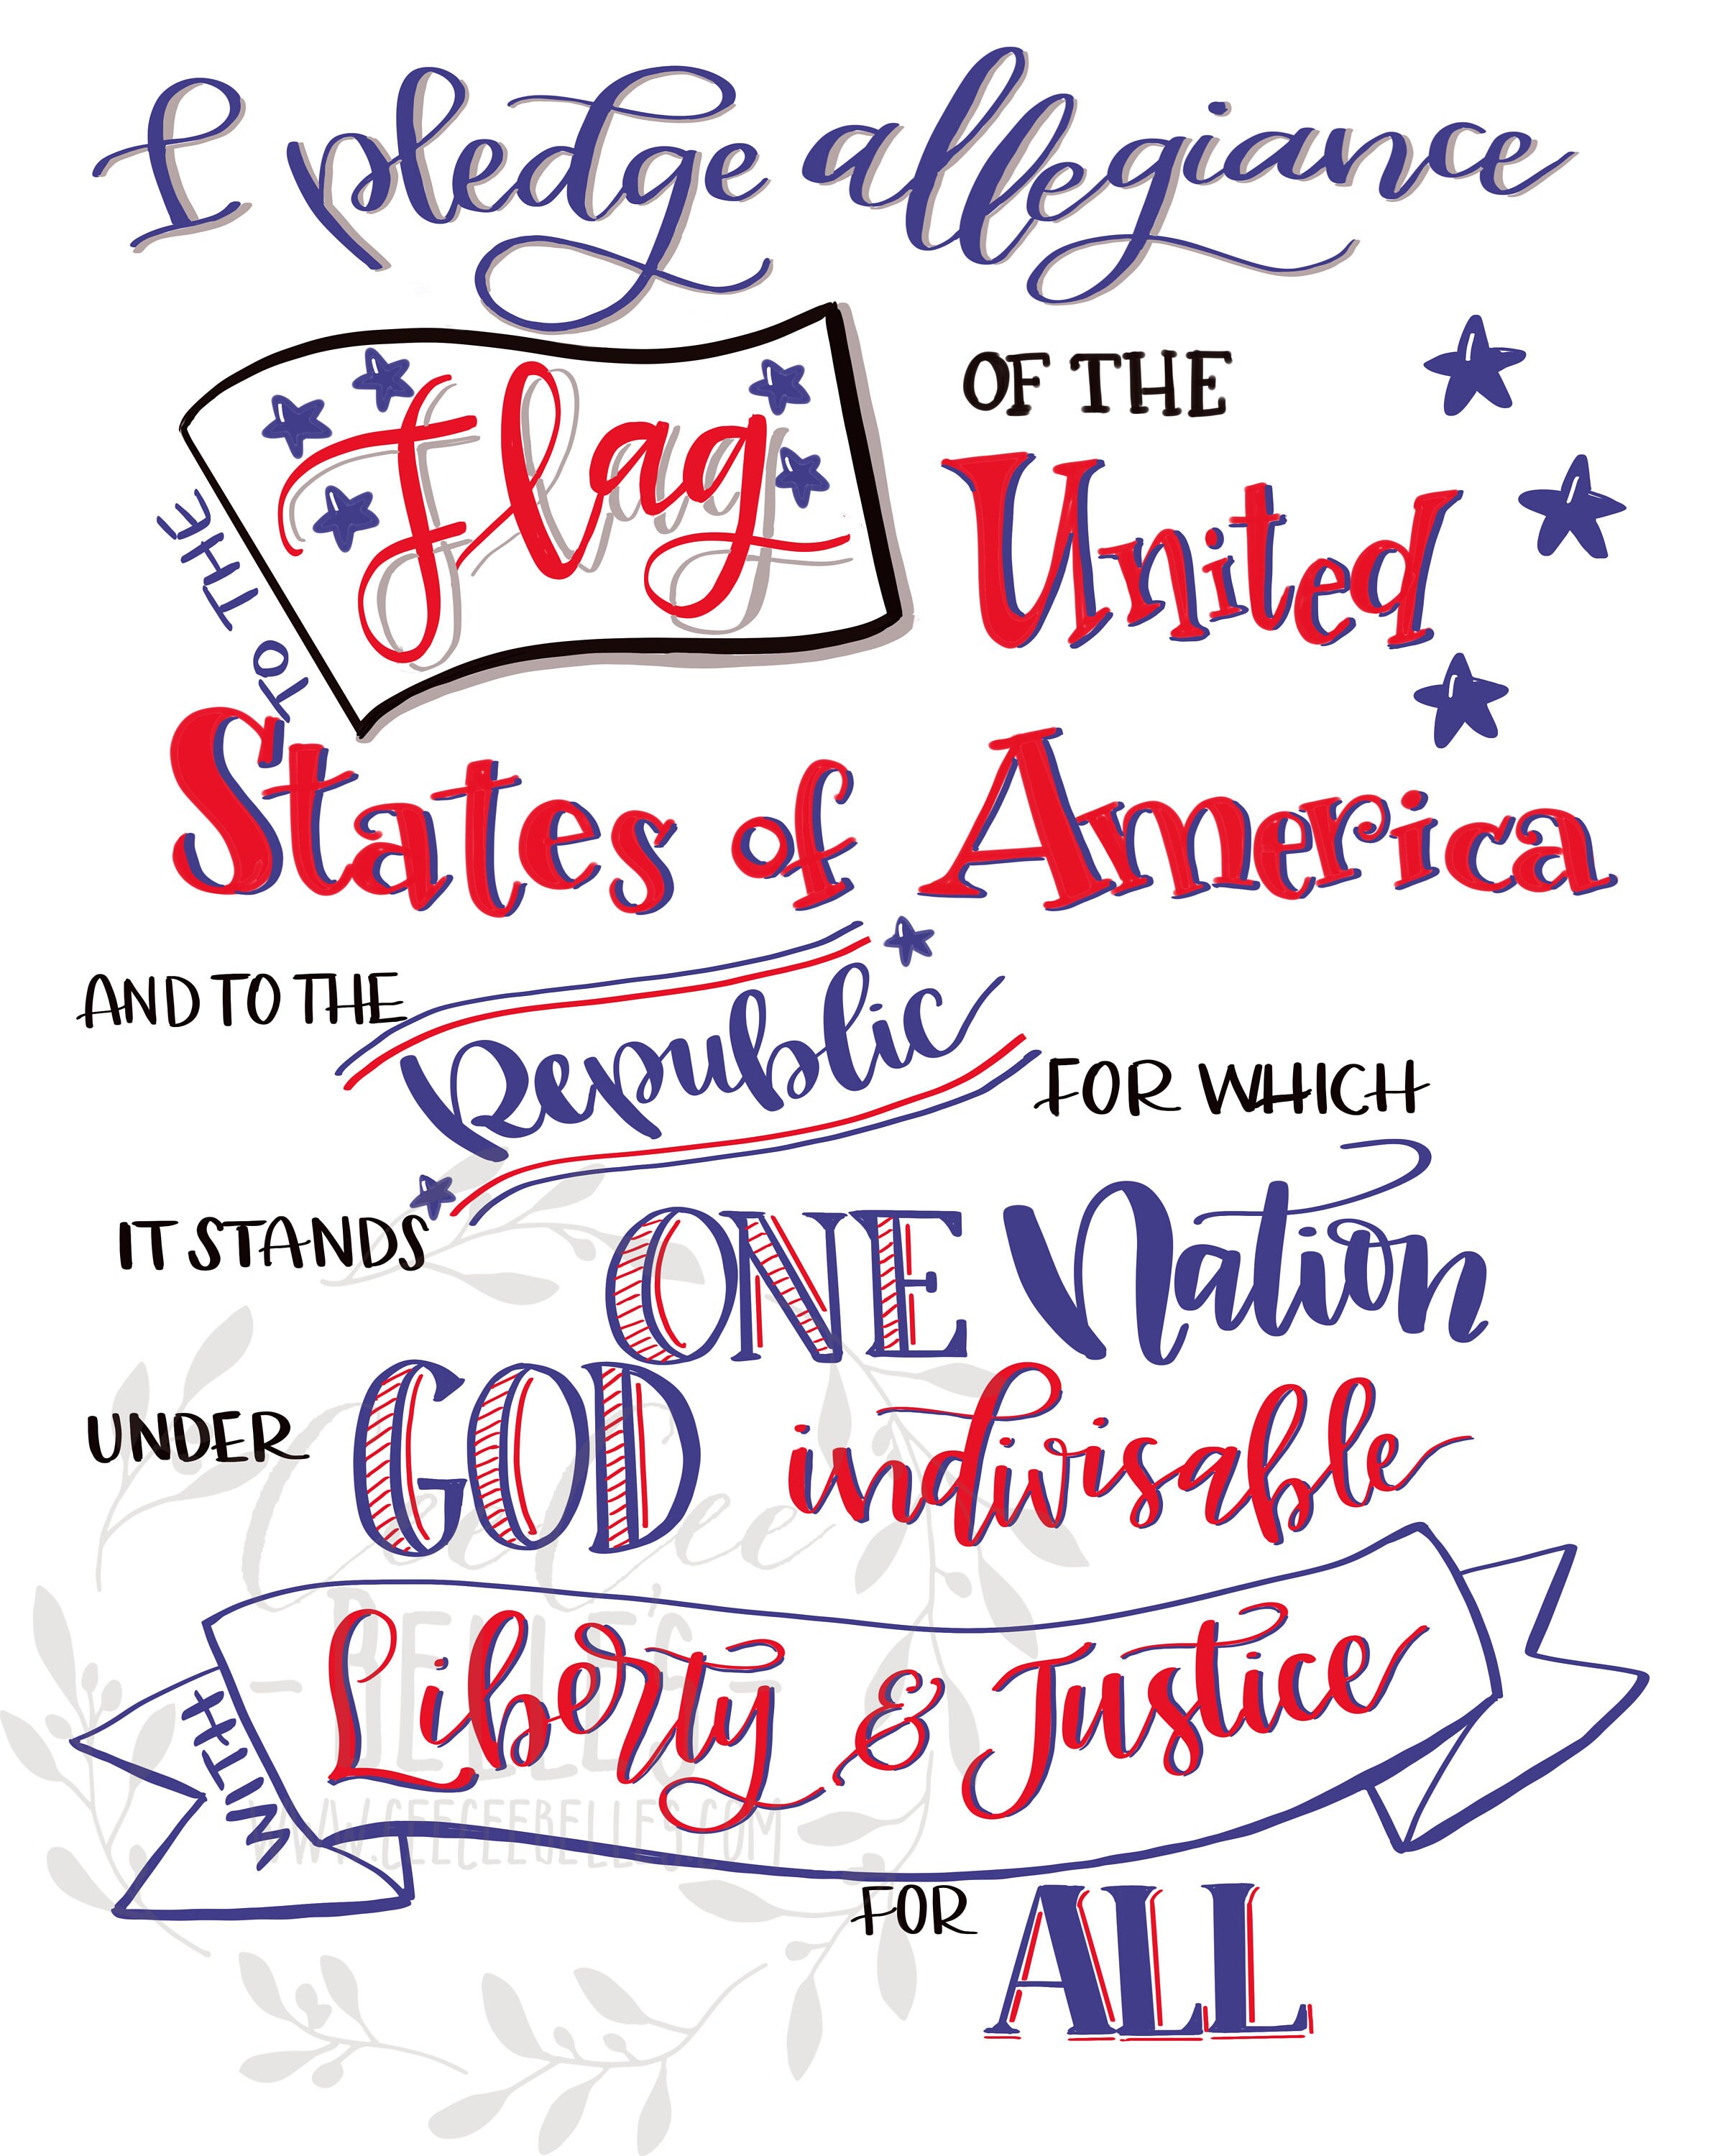 I pledge allegiance
TO THE
Flag
OF THE
United
States of America
AND TO THE
Republic
FOR WHICH
IT STANDS
ONE Nation
UNDER
GOD indivisable
WITH
Liberty & Justice
FOR
ALL
CeeCee
BELLE'S
WWW.CEECEEBELLES.COM